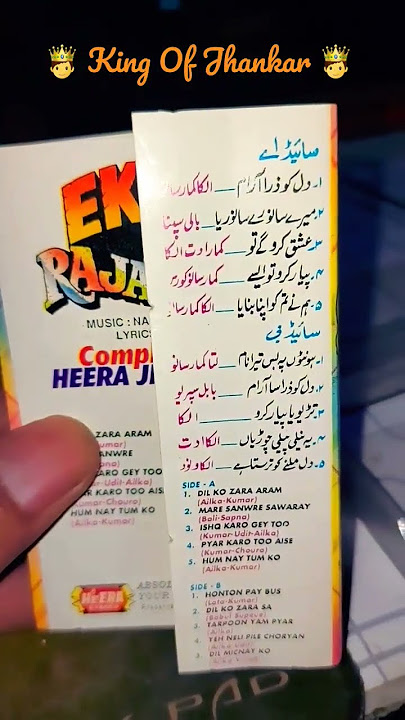 King Of Jhankar
EK
RAJA
MUSIC : NA
LYRIC
Comp
HEERA J
ZARA ARAM
(Kumar)
SANWRE
ARO GEY TOO
ar-Udit-Alka)
AR KARO TOO AISE
(Kumar-Chouro)
HUM NAY TUM KO
(Alka-Kumar)
HEERA
ABSO
YOUR
سائیڈ اے
۱۔ دل کو ذرا آرام __ الکا کمار سانو
۲۔ میرے سانورے سانوریا __ بالی سپنا
۳۔ عشق کرو گے تو __ کمار ادت الکا
۴۔ پیار کرو تو ایسے __ کمار سانو
۵۔ ہم نے تم کو اپنا بنایا __ الکا کمار سانو
سائیڈ بی
۱۔ ہونٹوں پہ بس تیرا نام __ لتا کمار سانو
۲۔ دل کو ذرا سا آرام __ بابل سپریو
۳۔ تڑپوں یا پیار کرو __ الکا
۴۔ یہ نیلی پیلی چوڑیاں __ الکا ادت
۵۔ دل ملنے کو ترستا ہے __ الکا
SIDE - A
1. DIL KO ZARA ARAM
(Alka-Kumar)
2. MARE SANWRE SAWARAY
(Bali-Sapna)
3. ISHQ KARO GEY TOO
(Kumar-Udit-Alka)
4. PYAR KARO TOO AISE
(Kumar-Chouro)
5. HUM NAY TUM KO
(Alka-Kumar)
SIDE - B
1. HONTON PAY BUS
(Lata-Kumar)
2. DIL KO ZARA SA
(Babul Supruve)
3. TARPOON YAM PYAR
(Alka)
4. YEH NELI PILE CHORYAN
(Alka-Udit)
5. DIL MICNAY KO
PAD